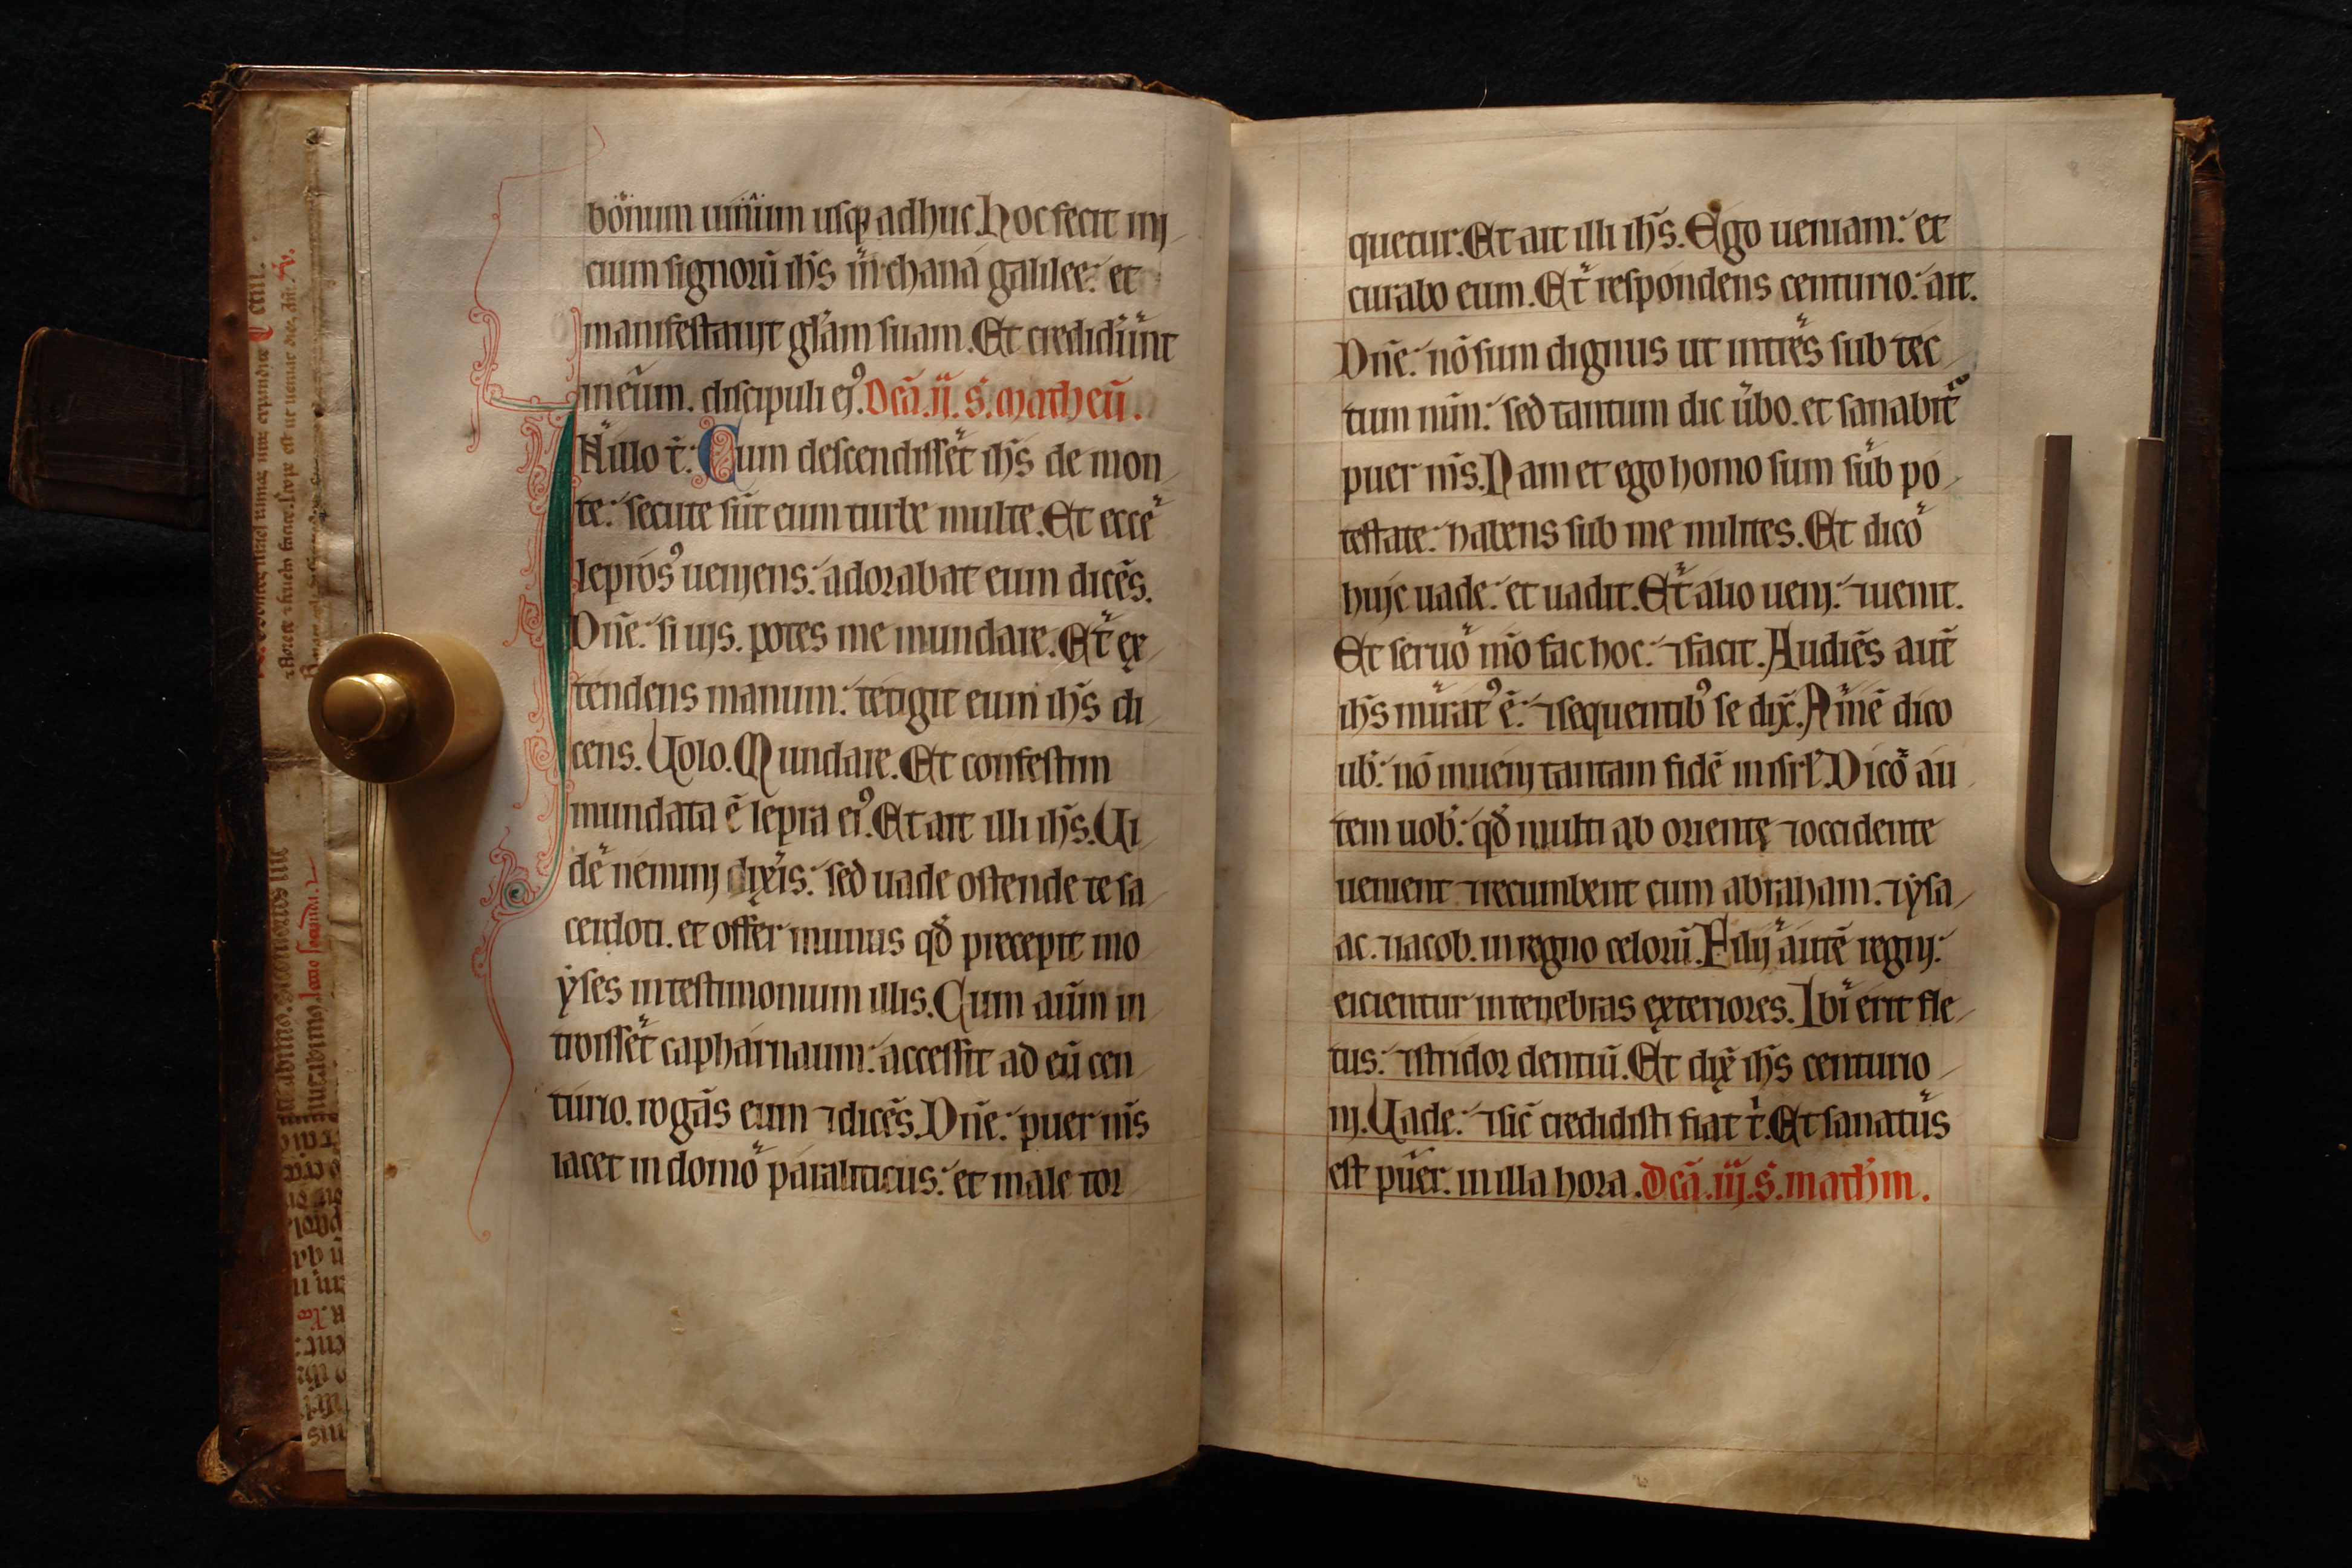 bonum uinum usq; adhuc. Hoc fecit inj
cium signorū ih̄s in chana galilee: et
manifestauit gl̄am suam. Et crediderūnt
in eum. discipuli ej᷒. Dc̄a. ij. s. matheū.
IN illo t̄: Cum descendisset ih̄s de mon
te: secute sūt eum turbe multe. Et ecce
lepros᷒ ueniens: adorabat eum dicēs.
Dn̄e: si uis. potes me mundare. Et ex
tendens manum: tetigit eum ih̄s di
cens. Uolo. Mundare. Et confestim
mundata ē lepra ei᷒. Et ait illi ih̄s. Ui
de nemini dixeris: sed uade ostende te sa
cerdoti. et offer munus qd̄ precepit mo
yses in testimonium illis. Cum aūm in
troisset capharnaum: accessit ad eū cen
turio. rogās eum ⁊ dicēs. Dn̄e: puer m̄s
iacet in domo paraliticus: et male tor
quetur. Et ait illi ih̄s. Ego ueniam: et
curabo eum. Et respondens centurio: ait.
Dn̄e: nō sum dignus ut intres sub tec
tum mm̄: sed tantum dic ūbo. et sanabit᷒
puer m̄s. Nam et ego homo sum sub po
testate: habens sub me milites. Et dico
huic uade: et uadit. Et alio ueni: ⁊ uenit.
Et seruo mō fac hoc: ⁊ facit. Audiēs aut̄
ih̄s mirat᷒ ē: ⁊ sequentib᷒ se dix̄. Amē dico
ub̄: nō inueni tantam fidē in isrl̄. Dico au
tem uob̄: qd̄ multi ab oriente ⁊ occidente
uenient ⁊ recumbent cum abraham. ⁊ ysa
ac. ⁊ iacob. in regno celorū. Filij autē regnj:
eicientur in tenebras exteriores. Ibi erit fle
tus: ⁊ stridor dentiū. Et dix̄ ih̄s centurio
nj. Uade: ⁊ sic̄ credidisti fiat t. Et sanatus
est puer. in illa hora. Dc̄a. iij. s. math̄m.